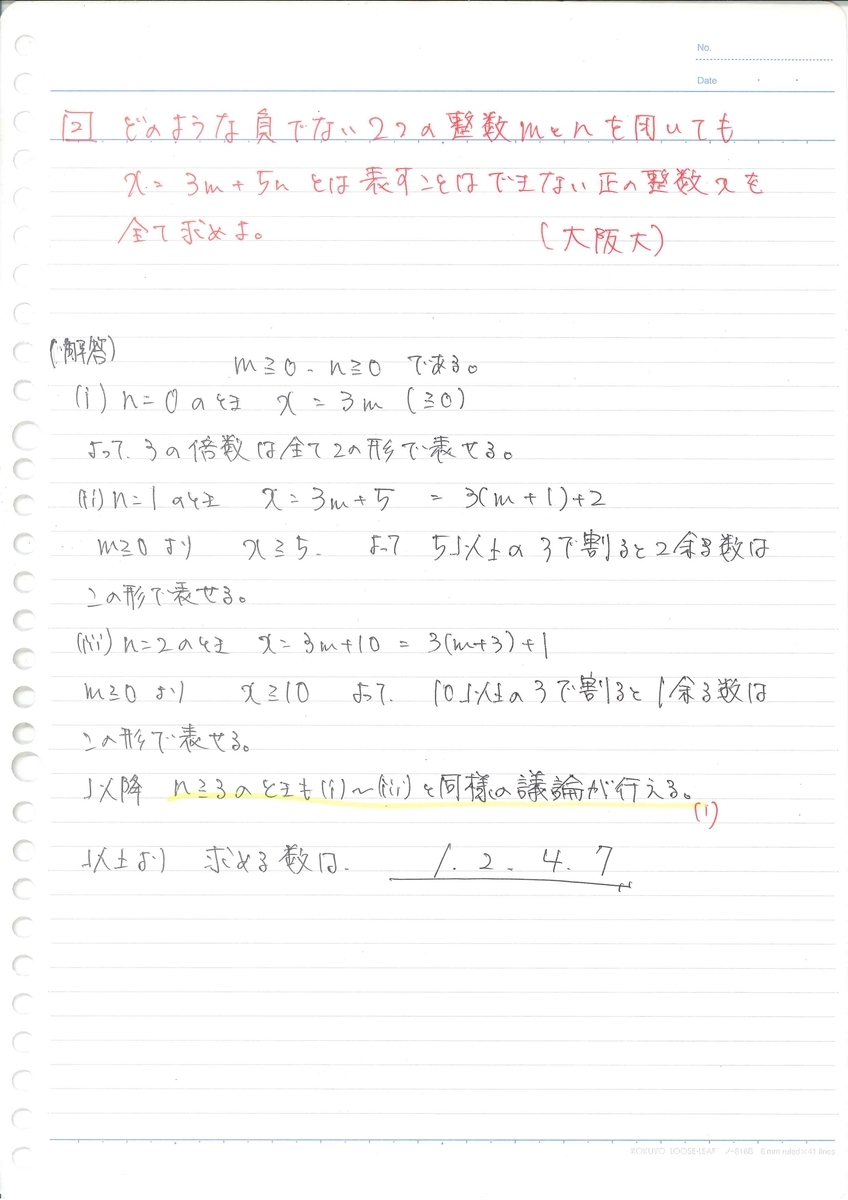 No.
Date
[2] どのような負でない2つの整数mとnを用いても
x = 3m + 5n とは表すことはできない正の整数xを
全て求めよ。 (大阪大)
(解答) m≧0、n≧0 である。
(i) n=0 のとき x = 3m (≧0)
よって、3の倍数は全てこの形で表せる。
(ii) n=1 のとき x = 3m+5 = 3(m+1)+2
m≧0 より x≧5. よって 5以上の3で割ると2余る数は
この形で表せる。
(iii) n=2 のとき x = 3m+10 = 3(m+3)+1
m≧0 より x≧10 よって、10以上の3で割ると1余る数は
この形で表せる。
以降 n≧3のときも(i)~(iii)と同様の議論が行える。
(1)
以上より 求める数は、 1、2、4、7
KOKUYO LOOSE-LEAF ノ-816B 6 mm ruled×41 lines